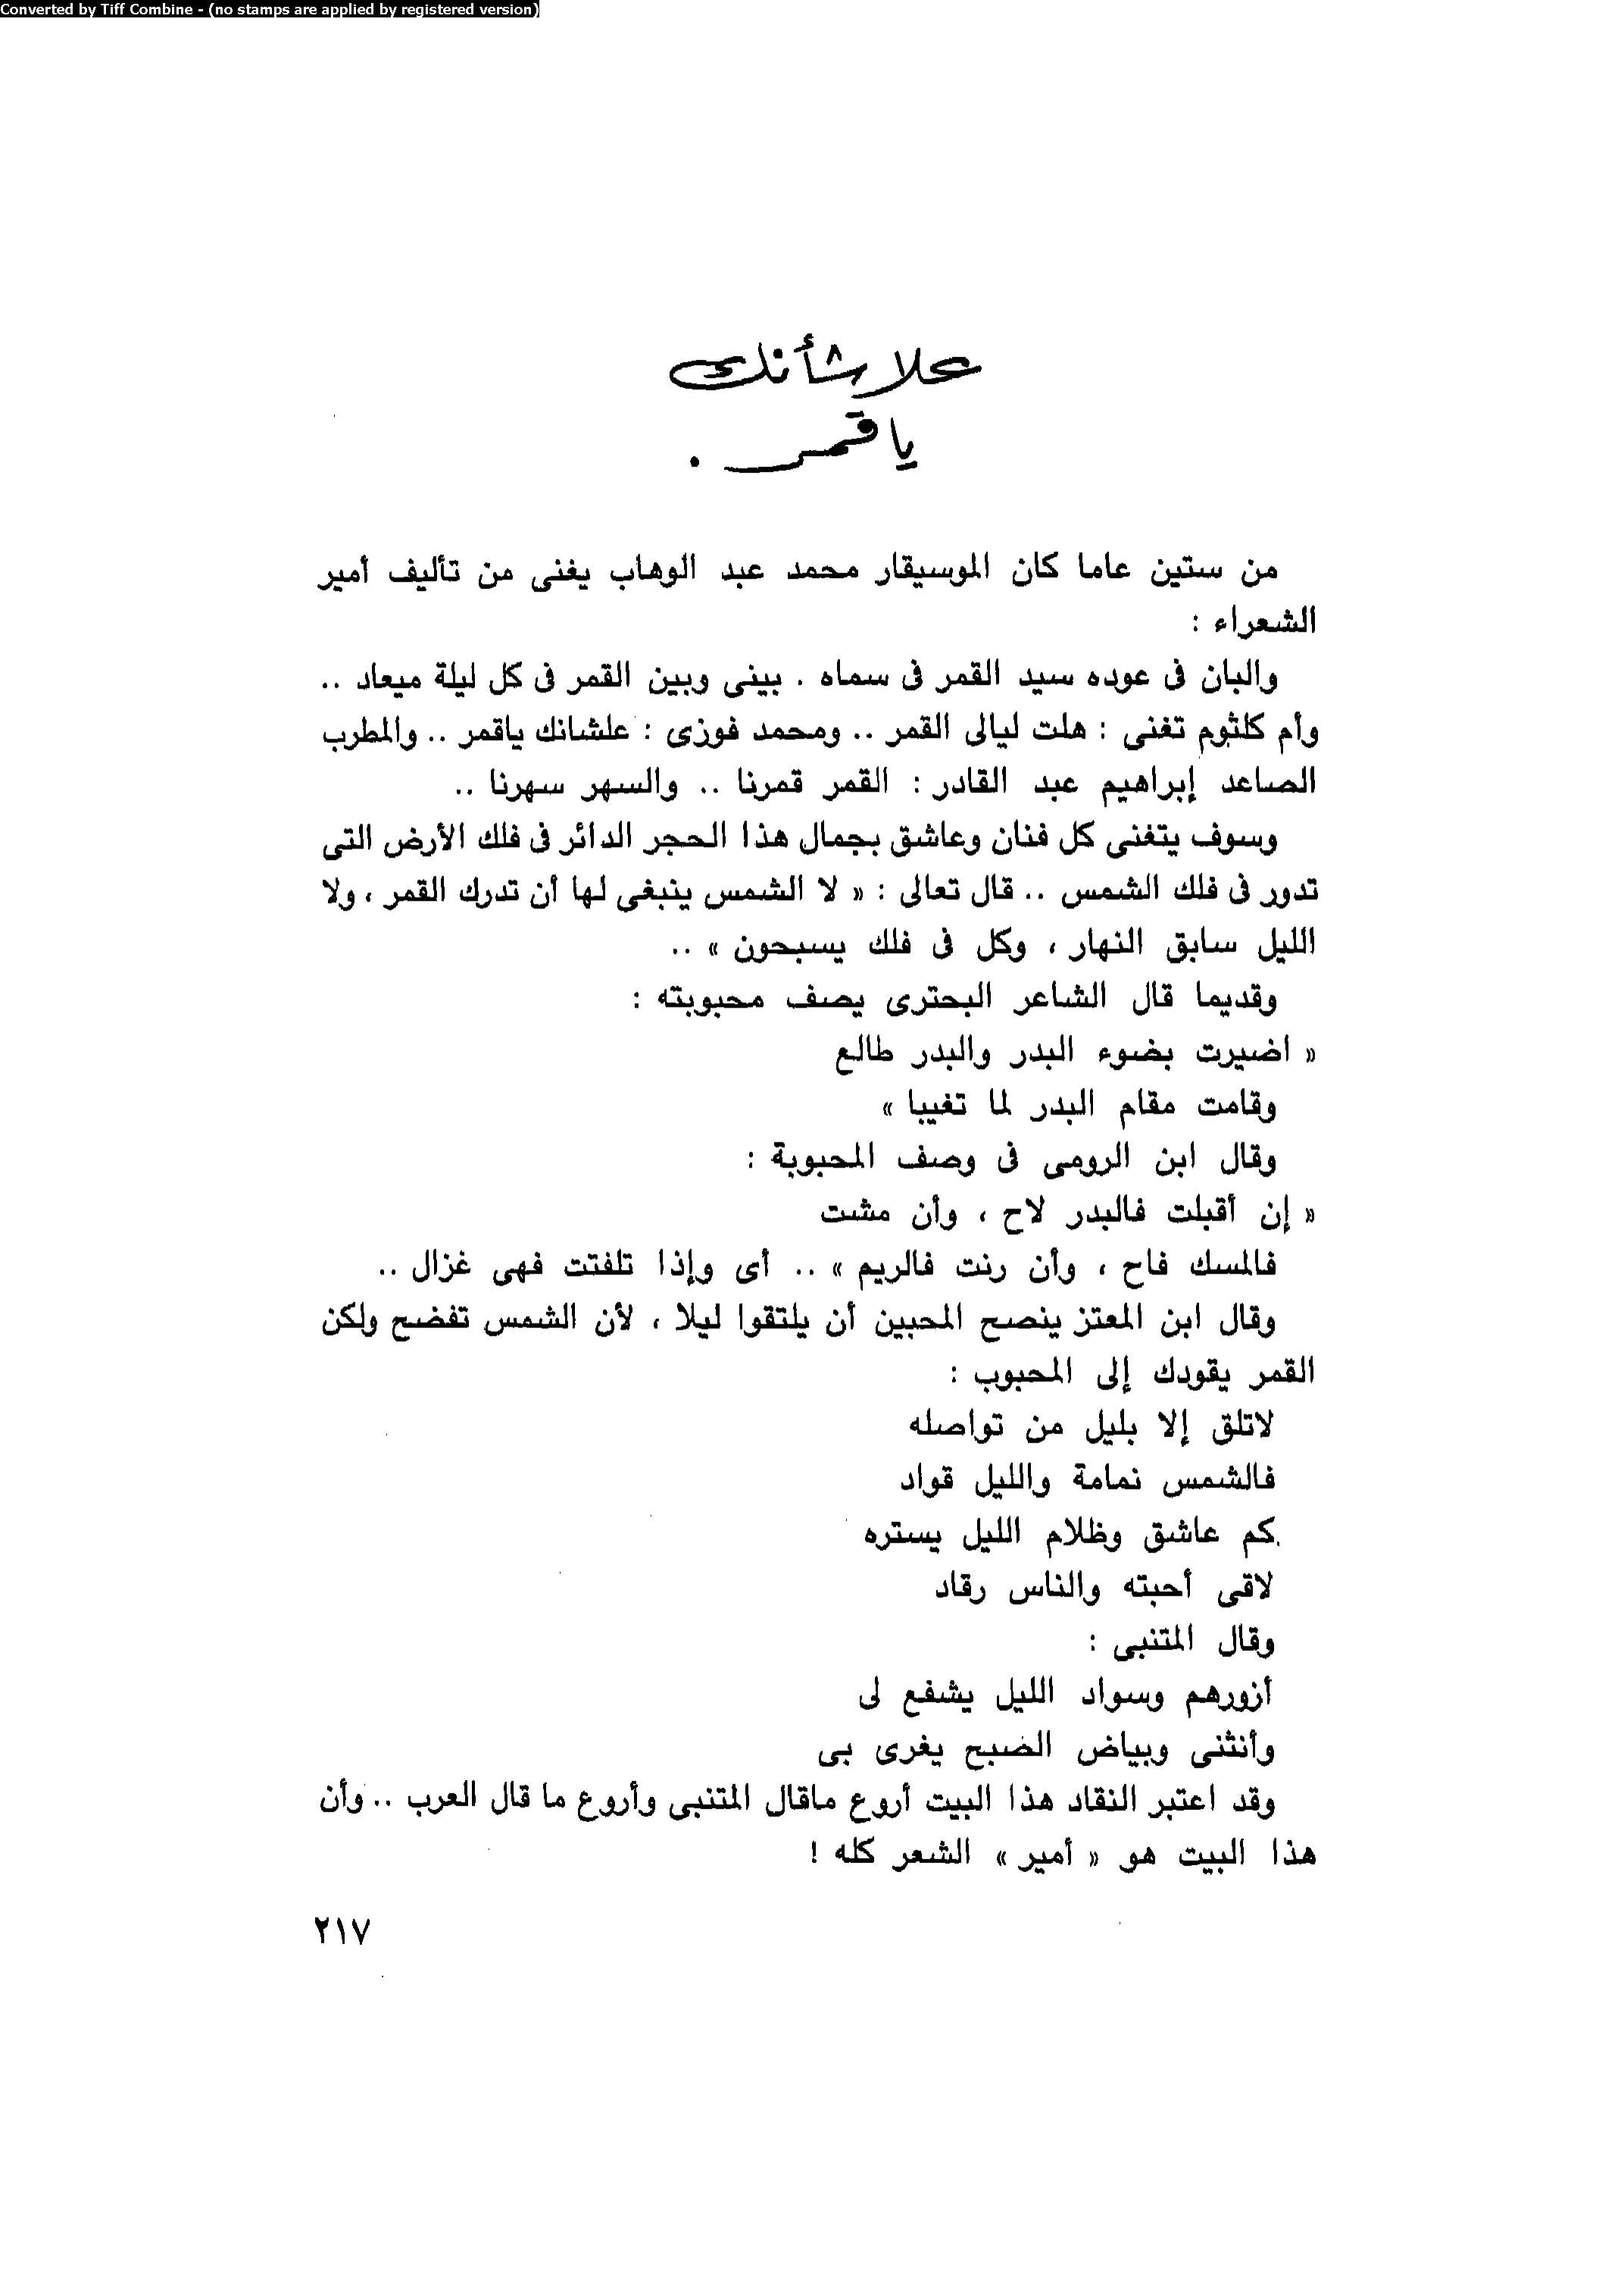 Converted by Tiff Combine - (no stamps are applied by registered version)
علا شأنك
ياقمر .
من ستين عاما كان الموسيقار محمد عبد الوهاب يغنى من تأليف أمير
الشعراء :
والبان فى عوده سيد القمر فى سماه . بينى وبين القمر فى كل ليلة ميعاد ..
وأم كلثوم تغنى : هلت ليالى القمر .. ومحمد فوزى : علشانك ياقمر .. والمطرب
الصاعد إبراهيم عبد القادر : القمر قمرنا .. والسهر سهرنا ..
وسوف يتغنى كل فنان وعاشق بجمال هذا الحجر الدائر فى فلك الأرض التى
تدور فى فلك الشمس .. قال تعالى : « لا الشمس ينبغى لها أن تدرك القمر ، ولا
الليل سابق النهار ، وكل فى فلك يسبحون » ..
وقديما قال الشاعر البحترى يصف محبوبته :
« اضيرت بضوء البدر والبدر طالع
وقامت مقام البدر لما تغيبا »
وقال ابن الرومى فى وصف المحبوبة :
« إن أقبلت فالبدر لاح ، وأن مشت
فالمسك فاح ، وأن رنت فالريم » .. أى وإذا تلفتت فهى غزال ..
وقال ابن المعتز ينصح المحبين أن يلتقوا ليلا ، لأن الشمس تفضح ولكن
القمر يقودك إلى المحبوب :
لاتلق إلا بليل من تواصله
فالشمس نمامة والليل قواد
كم عاشق وظلام الليل يستره
لاقى أحبته والناس رقاد
وقال المتنبى :
أزورهم وسواد الليل يشفع لى
وأنثنى وبياض الصبح يغرى بى
وقد اعتبر النقاد هذا البيت أروع ماقال المتنبى وأروع ما قال العرب .. وأن
هذا البيت هو « أمير » الشعر كله !
٢١٧